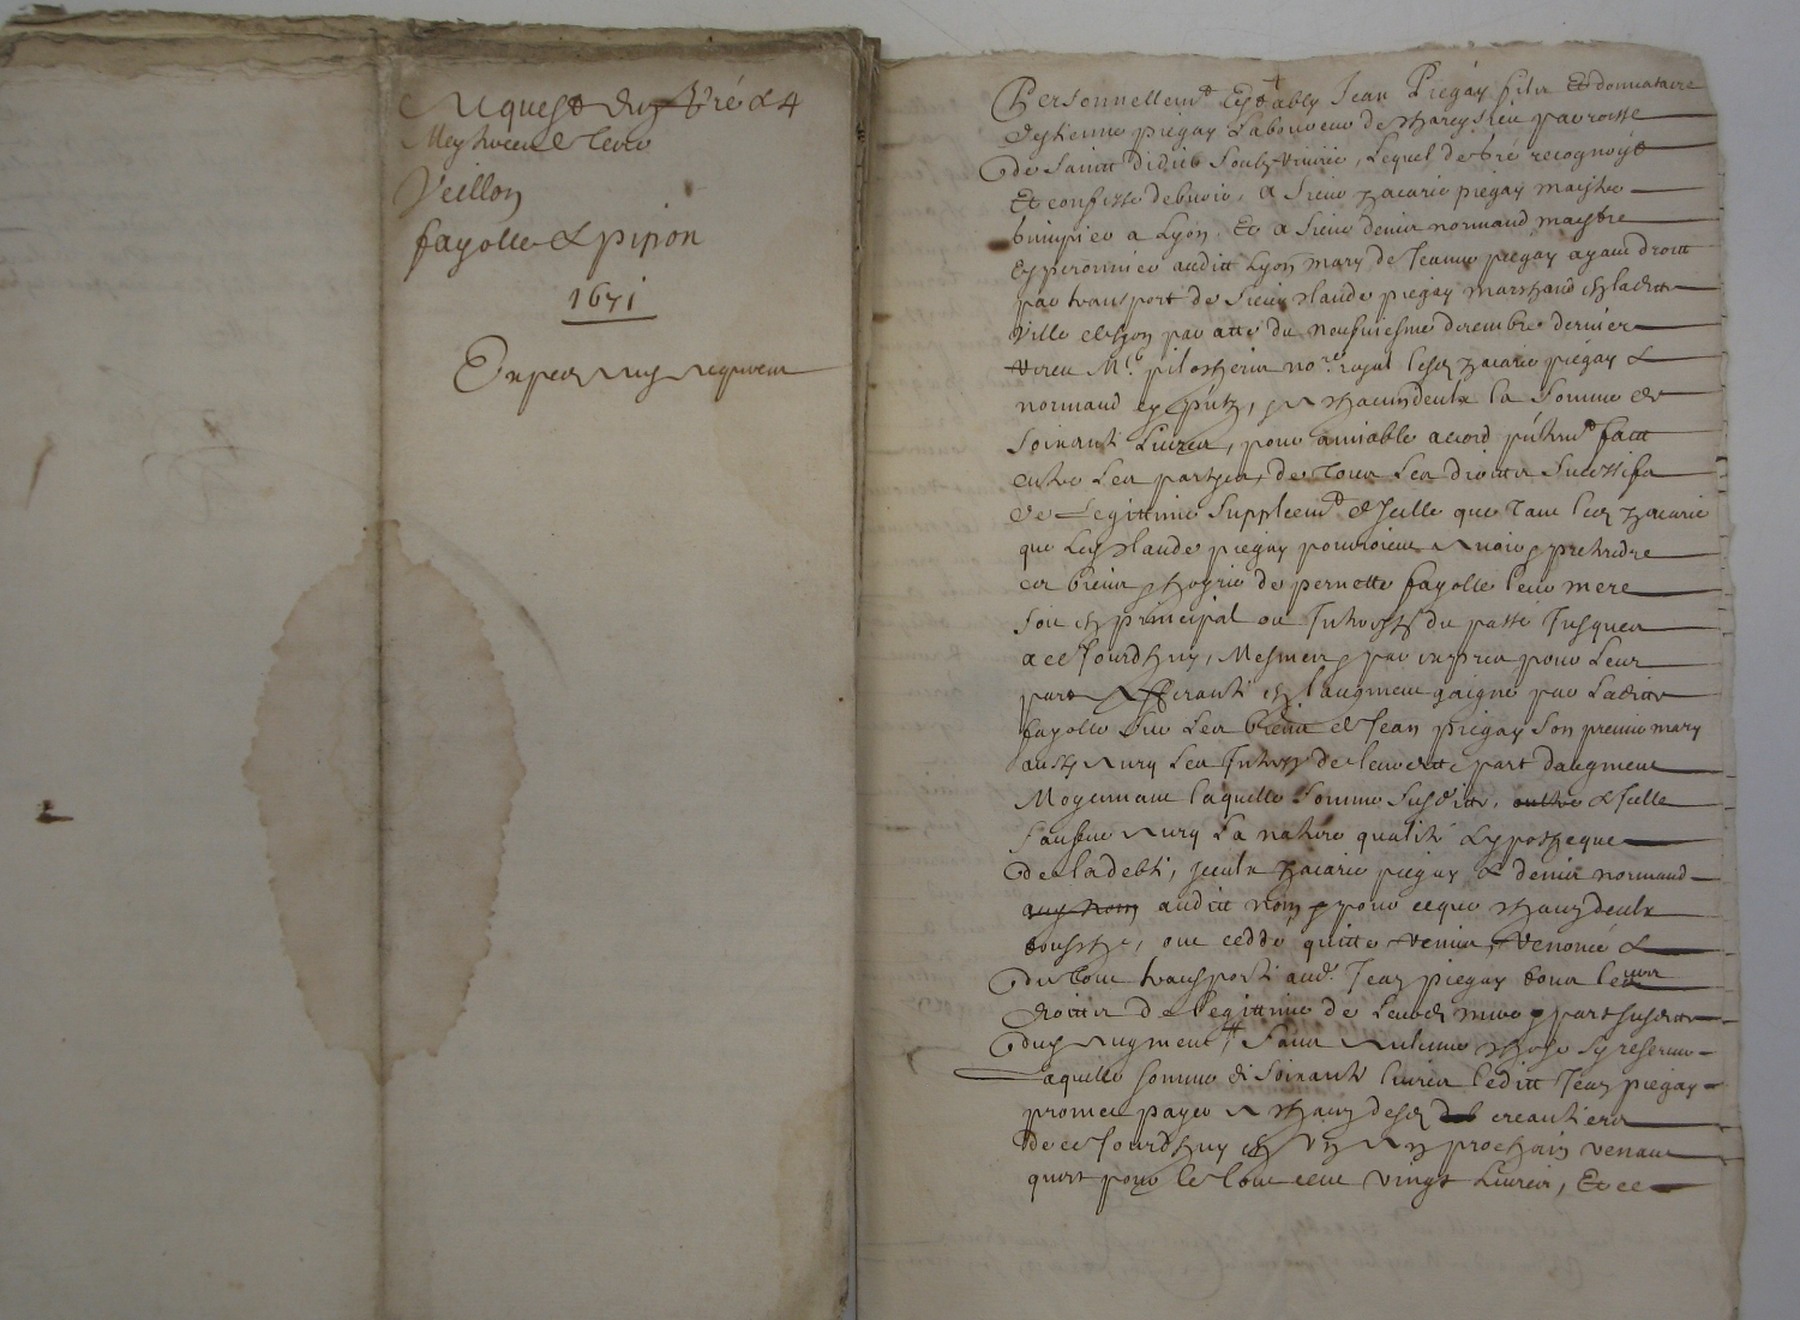 Veillon
fayolle & pipon
1671
Personnellemt Estably Jean Piegay filz Et donnataire
destienne piegay Laboureur de parroisse
de Sainct didier Soubz riviere, Lequel de gré recognoist
Et confesse debvoir, a Sieur zacarie piegay maistre
a Lyon, Et a Sieur denis normand maistre
Esperonnier audict Lyon mary de Jeanne piegay ayant droict
par transport de Sieur Claude piegay marchand en ladicte
Ville de Lyon par acte du neufviesme decembre dernier
receu Me. nore. royal lesd zacarie piegay &
normand, a chacun deulx la Somme de
Soixante Livres, pour amiable accord faict
entre Les parties, de tous Les droictz Sucessifz
de Legittime Supplemt d'Icelle que tant led zacarie
que Led Claude piegay pourroient avoir & prethendre
es biens & hoyrie de pernette fayolle leur mere
Soit en principal ou Intherestz du passé Jusques
a ce Jourdhuy, Mesmes & par exprés pour Leur
part afferante en l'augment gaigné par Ladicte
fayolle Sur Les biens de Jean piegay Son premier mary
aussy avec Les de leurdicte part daugment
Moyennant laquelle Somme Susdicte, & Icelle
avec La nature qualité & hypotheque
de la debte, Iceulx zacarie piegay & denis normand
audict nom & pour ce que chacun deulx
touche, ont ceddé quitté remis, renoncé &
du tout transporté aud. Jean piegay tous leurs
droictz de Legittime de Leurd mere & part Susdicte
dud augment, Sans aulcune chose Sy reserver
Laquelle Somme de Soixante livres ledict Jean piegay
promet payer a chacun desd creantiers
de ce Jourdhuy en Un an prochain venant
quest pour le tout cent vingt Livres, Et ce